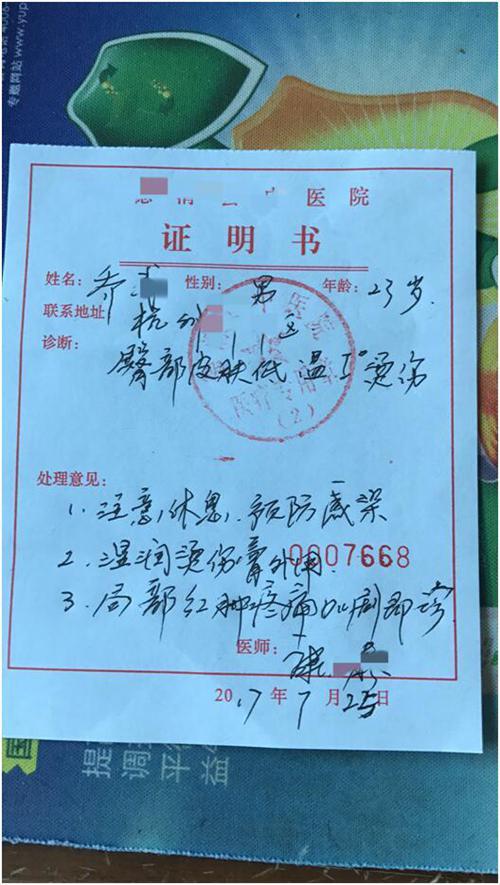 专题网站 www.yup
医院
证明书
姓名：乔 性别：男 年龄：23岁.
联系地址 杭州 区
诊断：
臀部皮肤低温I°烫伤
医疗专用章
(2)
处理意见：
1. 注意休息, 预防感染
2. 湿润烫伤膏外用.
0007668
3. 局部红肿疼痛加剧即诊
医师：
2017年7月25日
国
提
调
平衡
益